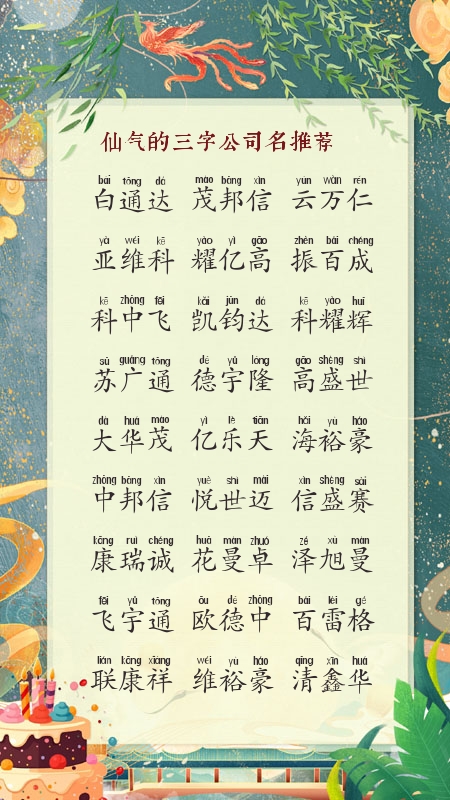 仙气的三字公司名推荐
bái tōng dá mào bāng xìn yún wàn rén
白通达 茂邦信 云万仁
yà wéi kē yào yì gāo zhèn bǎi chéng
亚维科 耀亿高 振百成
kē zhōng fēi kǎi jūn dá kē yào huī
科中飞 凯钧达 科耀辉
sū guǎng tōng dé yǔ lóng gāo shèng shì
苏广通 德宇隆 高盛世
dà huá mào yì lè tiān hǎi yù háo
大华茂 亿乐天 海裕豪
zhōng bāng xìn yuè shì mài xìn shèng sài
中邦信 悦世迈 信盛赛
kāng ruì chéng huā màn zhuó zé xù màn
康瑞诚 花曼卓 泽旭曼
fēi yǔ tōng ōu dé zhōng bǎi léi gé
飞宇通 欧德中 百雷格
lián kāng xiáng wéi yù háo qīng xīn huá
联康祥 维裕豪 清鑫华